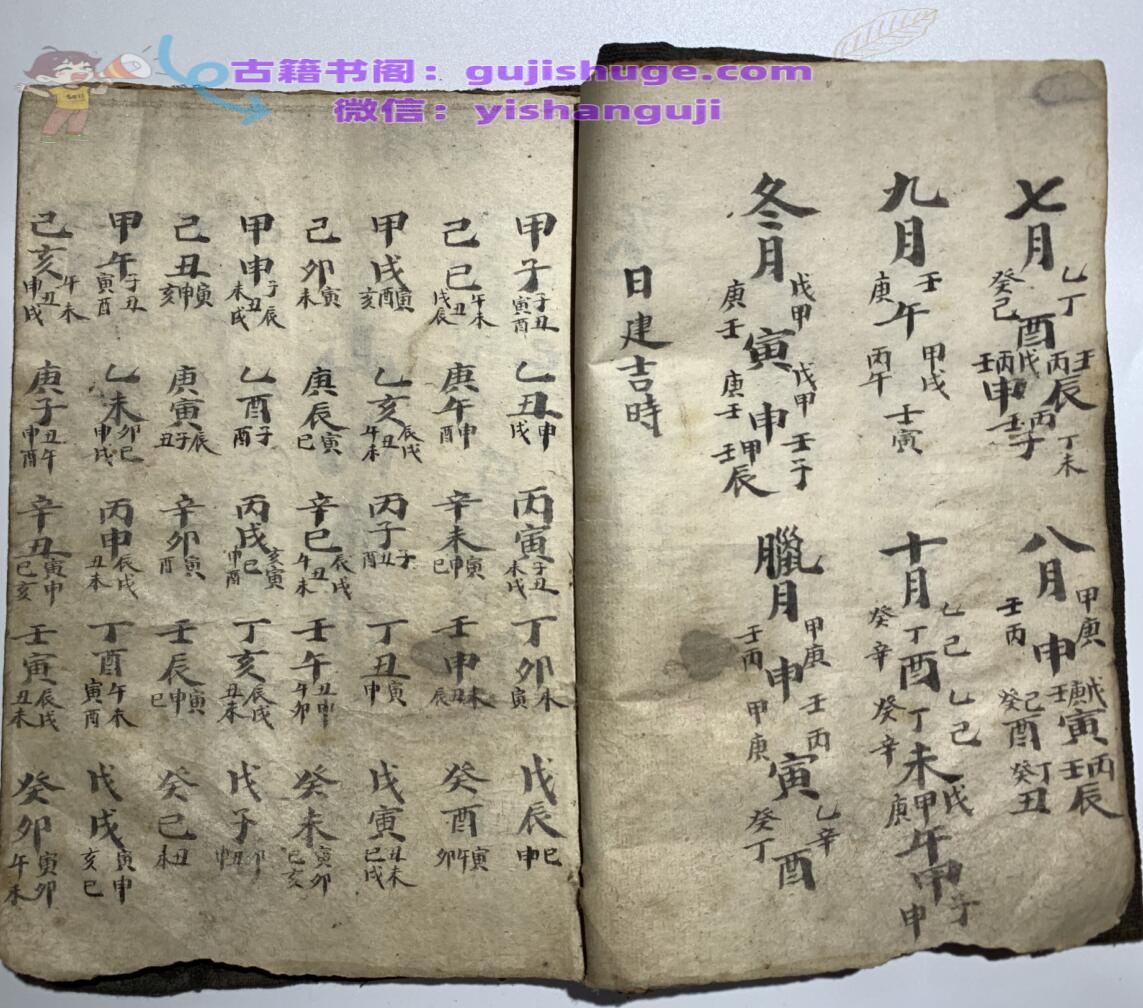 古籍书阁：gujishuge.com
微信：yishanguji
七月 乙丁癸己酉 壬丙辰 戊丙壬申 丙壬子 丁未
八月 甲庚壬丙申 戊壬寅 己癸酉 丙壬辰 丁癸丑
九月 壬庚午 甲戌 丙午 壬寅
十月 乙己丁癸辛酉 乙己丁癸辛未 戊甲庚午 甲子申
冬月 戊甲庚壬寅 戊甲庚壬申 壬子 甲壬辰
臘月 乙甲庚壬丙申 壬丙甲庚寅 乙辛癸丁酉
日建吉時
甲子 子丑寅酉 乙丑 申戌 丙寅 子丑未戌 丁卯 未寅 戊辰 巳申
己巳 午未丑戌辰 庚午 申酉 辛未 寅申巳 壬申 未丑辰 癸酉 寅午卯
甲戌 寅酉亥 乙亥 辰戌丑午未 丙子 子丑酉 丁丑 寅申 戊寅 丑未巳戌
己卯 寅未 庚辰 寅巳 辛巳 辰戌丑午未 壬午 丑申午卯 癸未 寅卯巳亥
甲申 子辰丑未戌 乙酉 子酉 丙戌 亥寅巳申酉 丁亥 辰戌丑未 戊子 卯丑申
己丑 寅申亥 庚寅 辰子丑 辛卯 寅酉 壬辰 寅申巳 癸巳 丑未
甲午 子丑寅酉 乙未 卯巳申戌 丙申 辰戌丑未 丁酉 午未寅酉 戊戌 寅申亥巳
己亥 午未丑申戌 庚子 丑午申酉 辛丑 寅申巳亥 壬寅 辰戌丑未 癸卯 寅卯午未